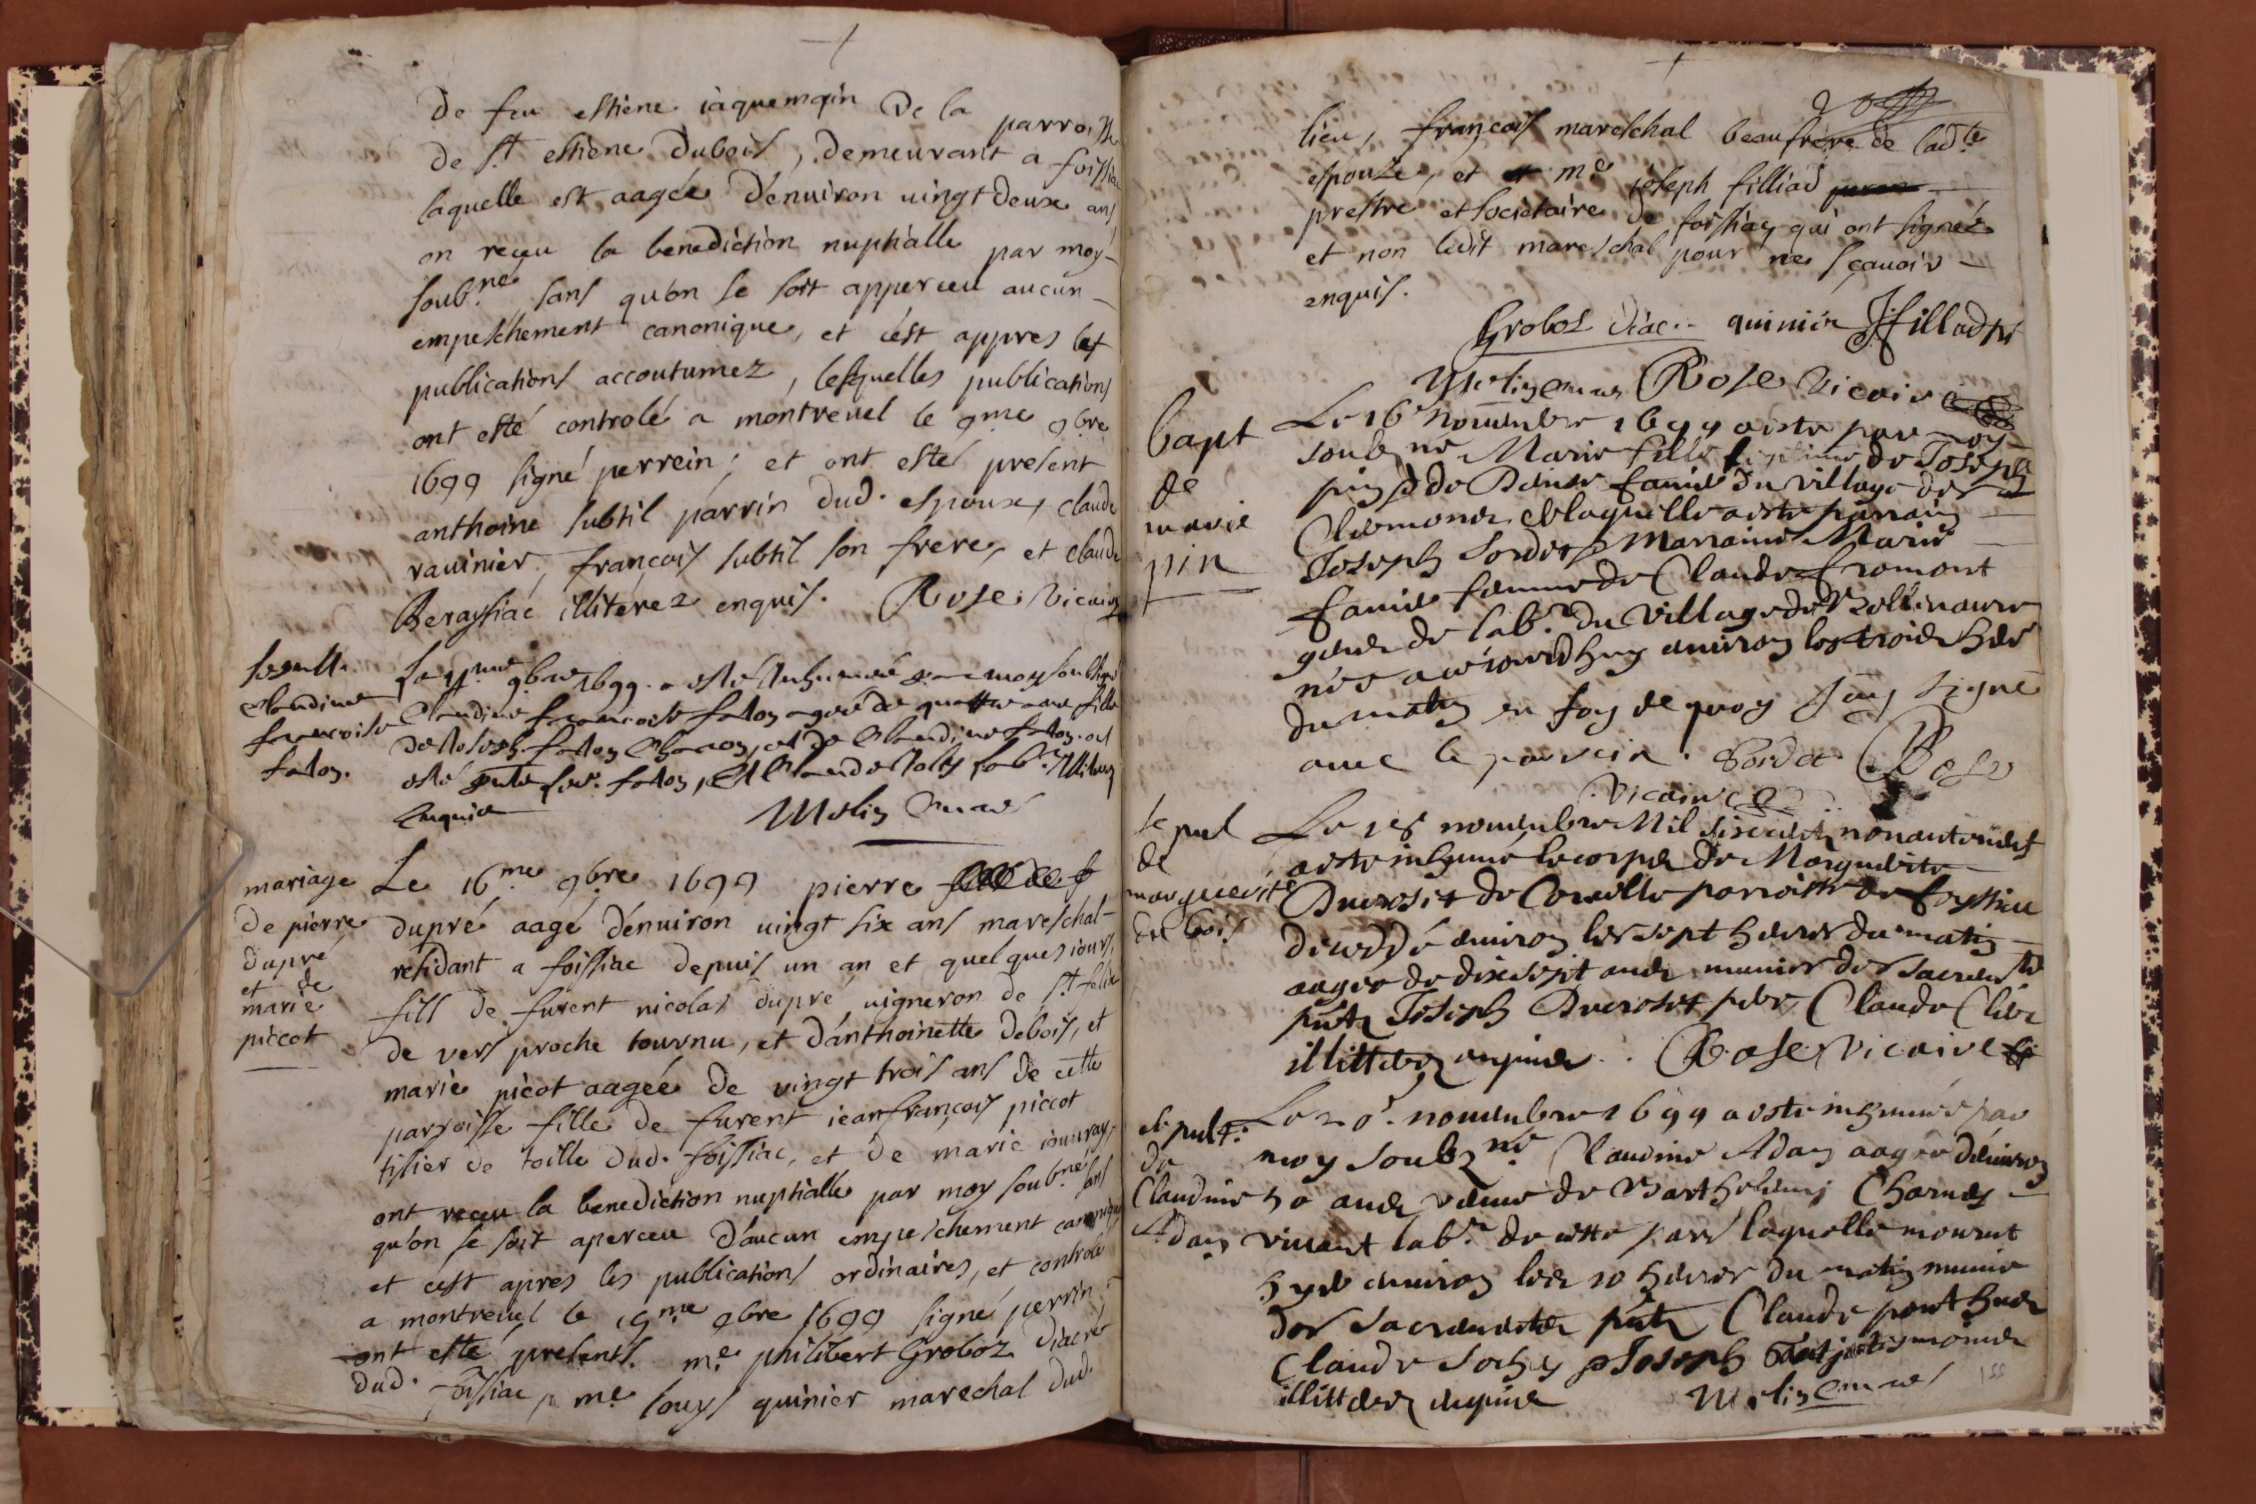 De feu estiene iaquemain De la parroisse
De st estiene Dubois, demeurant a foissia
laquelle est aagée d'enuiron uingt deux ans
on reçeu la benediction nuptialle par moy
soubné sans qu'on se soit apperceu aucun
empeschement canonique, et c'est appres les
publications accoutumez, lesquelles publications
ont esté controlé a montreuel le 9me 9bre
1699 signé perrein; et ont esté present
anthoine subtil parrin dud. espoux, claude
rauinier, françois subtil son frere, et claude
Berayssiac illiterez enquis. Rose vicaire
sepult. claudine francoise faton.
9bre 1699 a esté Inhumée par moy soubsigné
Claudine francoise faton agée de quattre ans fille
de Joseph faton et de Claudine faton. ont
esté faton, et Claude Joly lab.
Enquis
Molin Curé
mariage de pierre dupré et de marie piccot
Le 16me 9bre 1699 pierre
dupré aagé d'enuiron uingt six ans mareschal
residant a foissiac depuis un an et quelques iours,
fils de furent nicolas dupré uigneron de st felix
de vers proche tournu, et d'anthoinette debois, et
marie picot aagée de vingt trois ans de cette
parroisse fille de furent iean françois piccot
tissier de toille dud. foissiac, et de marie
ont receu la benediction nuptialle par moy soubné sans
qu'on se soit aperceu d'aucun empeschement canonique
et c'est apres les publications ordinaires, et controlé
a montreuel le 15me 9bre 1699 signé perrin
ont esté presents me philibert Groboz diacre
dud. foissiac, me louys quinier marechal dud.
lieu, françois mareschal beaufrere de ladte
espouze, et me ioseph filliad
prestre et societaire de foissiay qui ont signéz
et non ledit mareschal pour ne sçauoir
enquis.
Groboz diac. quinier J filliad ptre
Molin curé Rose vicaire
bapt de marie pin
Le 16e nouembre 1699 a esté par moy
soubzné Marie fille legitime de Joseph
pin & de Denise famie du village des
Clemones & laquelle a esté parrain
Joseph Sordet & Marraine Marie
famie femme de Claude Cromont
de lab. du village de
née auiourdhuy enuiron les trois heures
du matin en foy de quoy J'ay signé
auec le parrein. Sordet Rose
vicaire
sepul de marguerite du bois
Le 18 nouembre Mil sixcents nonanteneuf
a esté inhumé le corps de Marguerite
Ducroset de Coreille parroisse de foyssiac
decedé enuiron les sept heures du matin
aagée de dixsept ans munie des sacrements
pnts Joseph Ducroset père, Claude
illittérez enquis. Rose vicaire
sepult: de Claudine Adam
Le 20e nouembre 1699 a esté inhumée par
moy Soubzné Claudine Adam aagée d'enuiron
50 ans veuue de Barthelemy Charnay
viuant lab. de cette parr laquelle mourut
hyer enuiron les 10 heures du matin munie
des sacrements pnts Claude ponthus
Claude Sochay & Joseph
illittérez enquis Molin curé
155